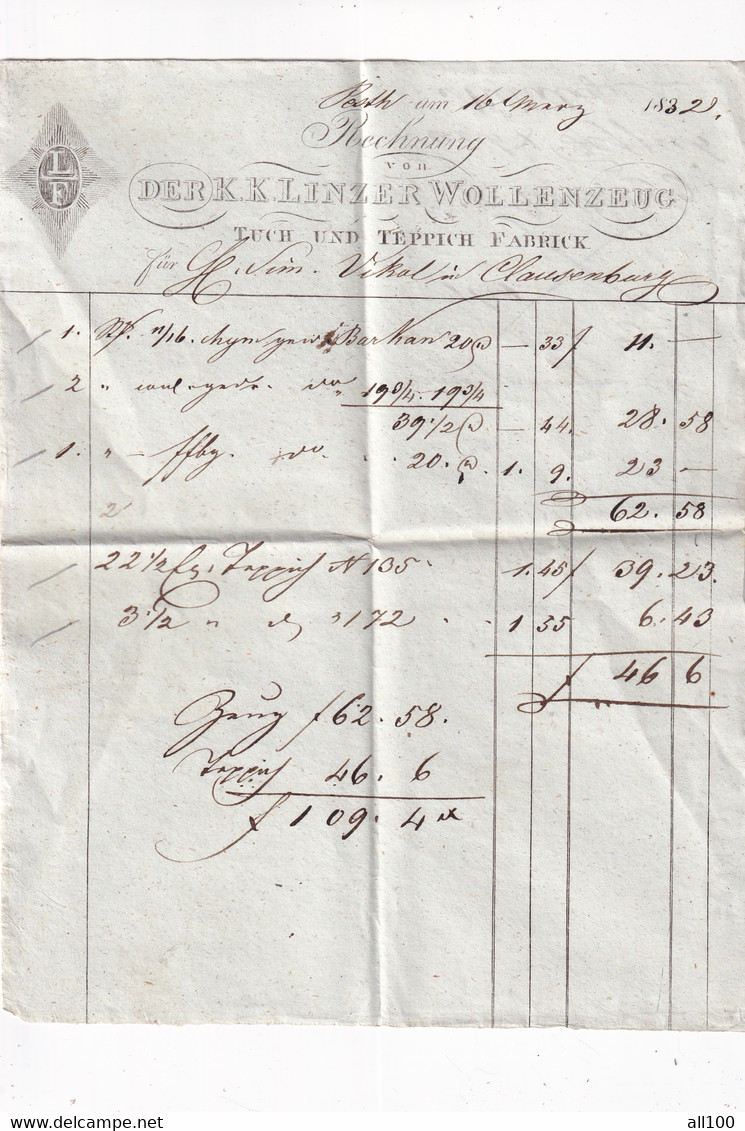 Pesth am 16 Merz 1832.
Rechnung
VON
DER K. K. LINZER WOLLENZEUG
TUCH UND TEPPICH FABRICK
L F
für H. Sim. Vikol in Clausenburg
1. 11/16. Barkan 20 @ — 33 f 11. —
2 " do 19 3/4. 19 3/4
39 1/2 @ — 44. 28. 58
1. " — ffbg. do. 20. @ 1. 9. 23 —
62. 58
22 1/2 Teppich N 135 1. 45 f 39. 23.
3 1/2 " " 172 " 1 55 6. 43
f 46 6
Zeug f 62. 58.
Teppich 46. 6
f 109. 4 x
www.delcampe.net
all100